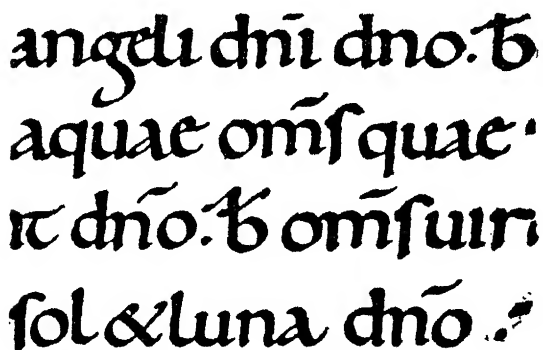 angeli dn̄i dn̄o. b̄
aquae om̄ſ quae ·
dn̄o. b̄ om̄ſ uir
ſol & luna dn̄o .